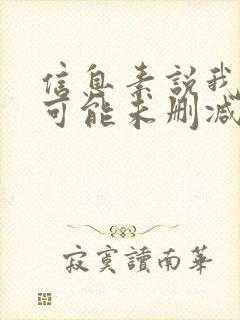 信息素説我
可能未删减
寂寞讀南華